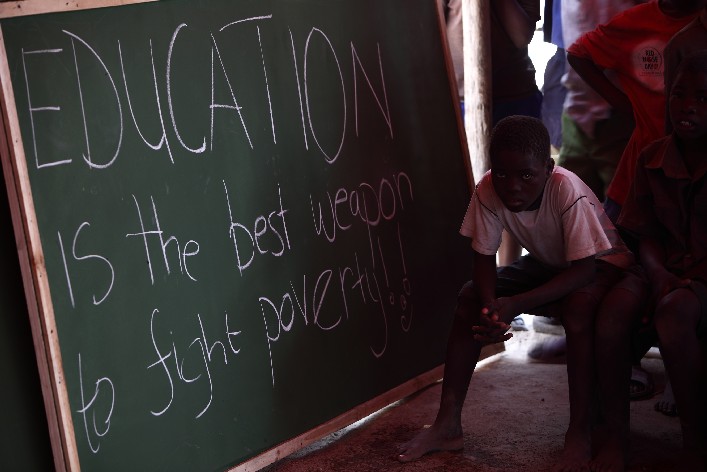 EDUCATION
IS the best weapon
to fight poverty!!